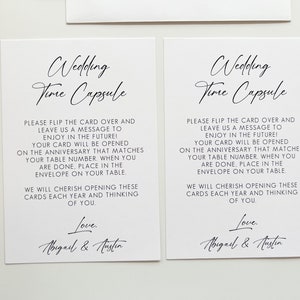 Wedding
Time Capsule
PLEASE FLIP THE CARD OVER AND
LEAVE US A MESSAGE TO
ENJOY IN THE FUTURE!
YOUR CARD WILL BE OPENED
ON THE ANNIVERSARY THAT MATCHES
YOUR TABLE NUMBER. WHEN YOU
ARE DONE, PLACE IN THE
ENVELOPE ON YOUR TABLE.
WE WILL CHERISH OPENING THESE
CARDS EACH YEAR AND THINKING
OF YOU.
Love,
Abigail & Austin
Wedding
Time Capsule
PLEASE FLIP THE CARD OVER AND
LEAVE US A MESSAGE TO
ENJOY IN THE FUTURE!
YOUR CARD WILL BE OPENED
ON THE ANNIVERSARY THAT MATCHES
YOUR TABLE NUMBER. WHEN YOU
ARE DONE, PLACE IN THE
ENVELOPE ON YOUR TABLE.
WE WILL CHERISH OPENING THESE
CARDS EACH YEAR AND THINKING
OF YOU.
Love,
Abigail & Austin